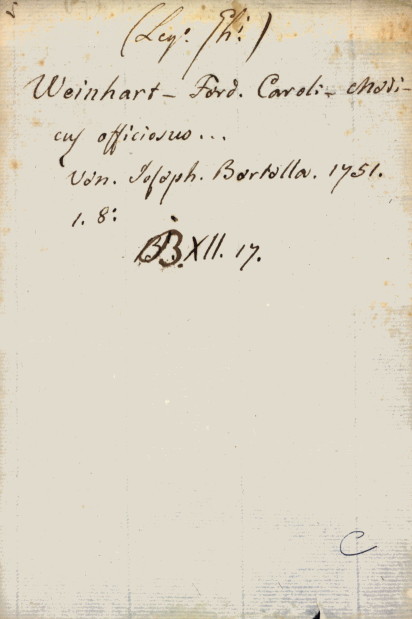 (Leg.
Weinhart - Ferd. Caroli - Medi-
cus officiosus...
Ven. Joseph. Bortella. 1751.
1. 8:
BB. XII. 17.
C